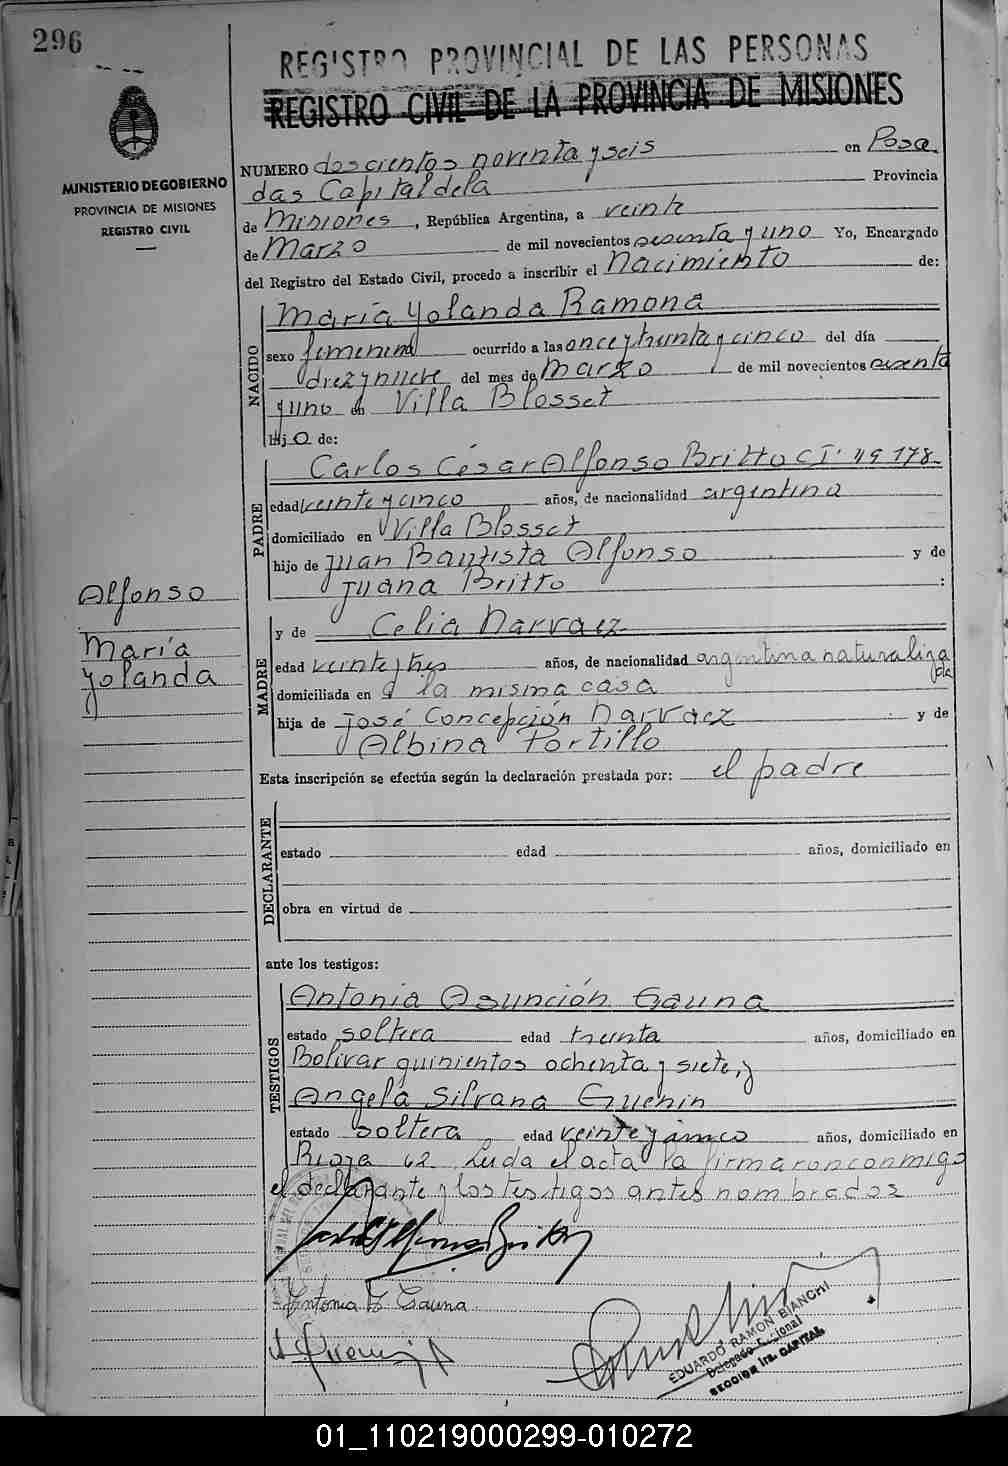 296
REGISTRO PROVINCIAL DE LAS PERSONAS
REGISTRO CIVIL DE LA PROVINCIA DE MISIONES
MINISTERIO DE GOBIERNO
PROVINCIA DE MISIONES
REGISTRO CIVIL
NUMERO doscientos noventa y seis en Posa
das Capital de la Provincia
de Misiones, República Argentina, a veinte
de Marzo de mil novecientos sesenta y uno Yo, Encargado
del Registro del Estado Civil, procedo a inscribir el Nacimiento de:
NACIDO
María Yolanda Ramona
sexo femenino ocurrido a las once y treinta y cinco del día
diez y nueve del mes de Marzo de mil novecientos sesenta
y uno en Villa Blosset
hijo de:
PADRE
Carlos César Alfonso Britto CI. 49 178
edad veinte y cinco años, de nacionalidad argentina
domiciliado en Villa Blosset
hijo de Juan Bautista Alfonso y de
Juana Britto :
Alfonso
María
Yolanda
MADRE
y de Celia Narvaez
edad veinte y tres años, de nacionalidad argentina naturaliza
da
domiciliada en la misma casa
hija de José Concepción Narvaez y de
Albina Portillo
Esta inscripción se efectúa según la declaración prestada por: el padre
DECLARANTE
estado edad años, domiciliado en
obra en virtud de
ante los testigos:
TESTIGOS
Antonia Asunción Gauna
estado soltera edad treinta años, domiciliado en
Bolivar quinientos ochenta y siete, y
Angela Silvana Guenin
estado soltera edad veinte y cinco años, domiciliado en
Rioja 62. Leida el acta la firmaron conmigo
el declarante y los testigos antes nombrados
Antonia G Gauna
EDUARDO RAMON BIANCHI
Delegado Seccional
SECCION 1ra. CAPITAL
01_110219000299-010272